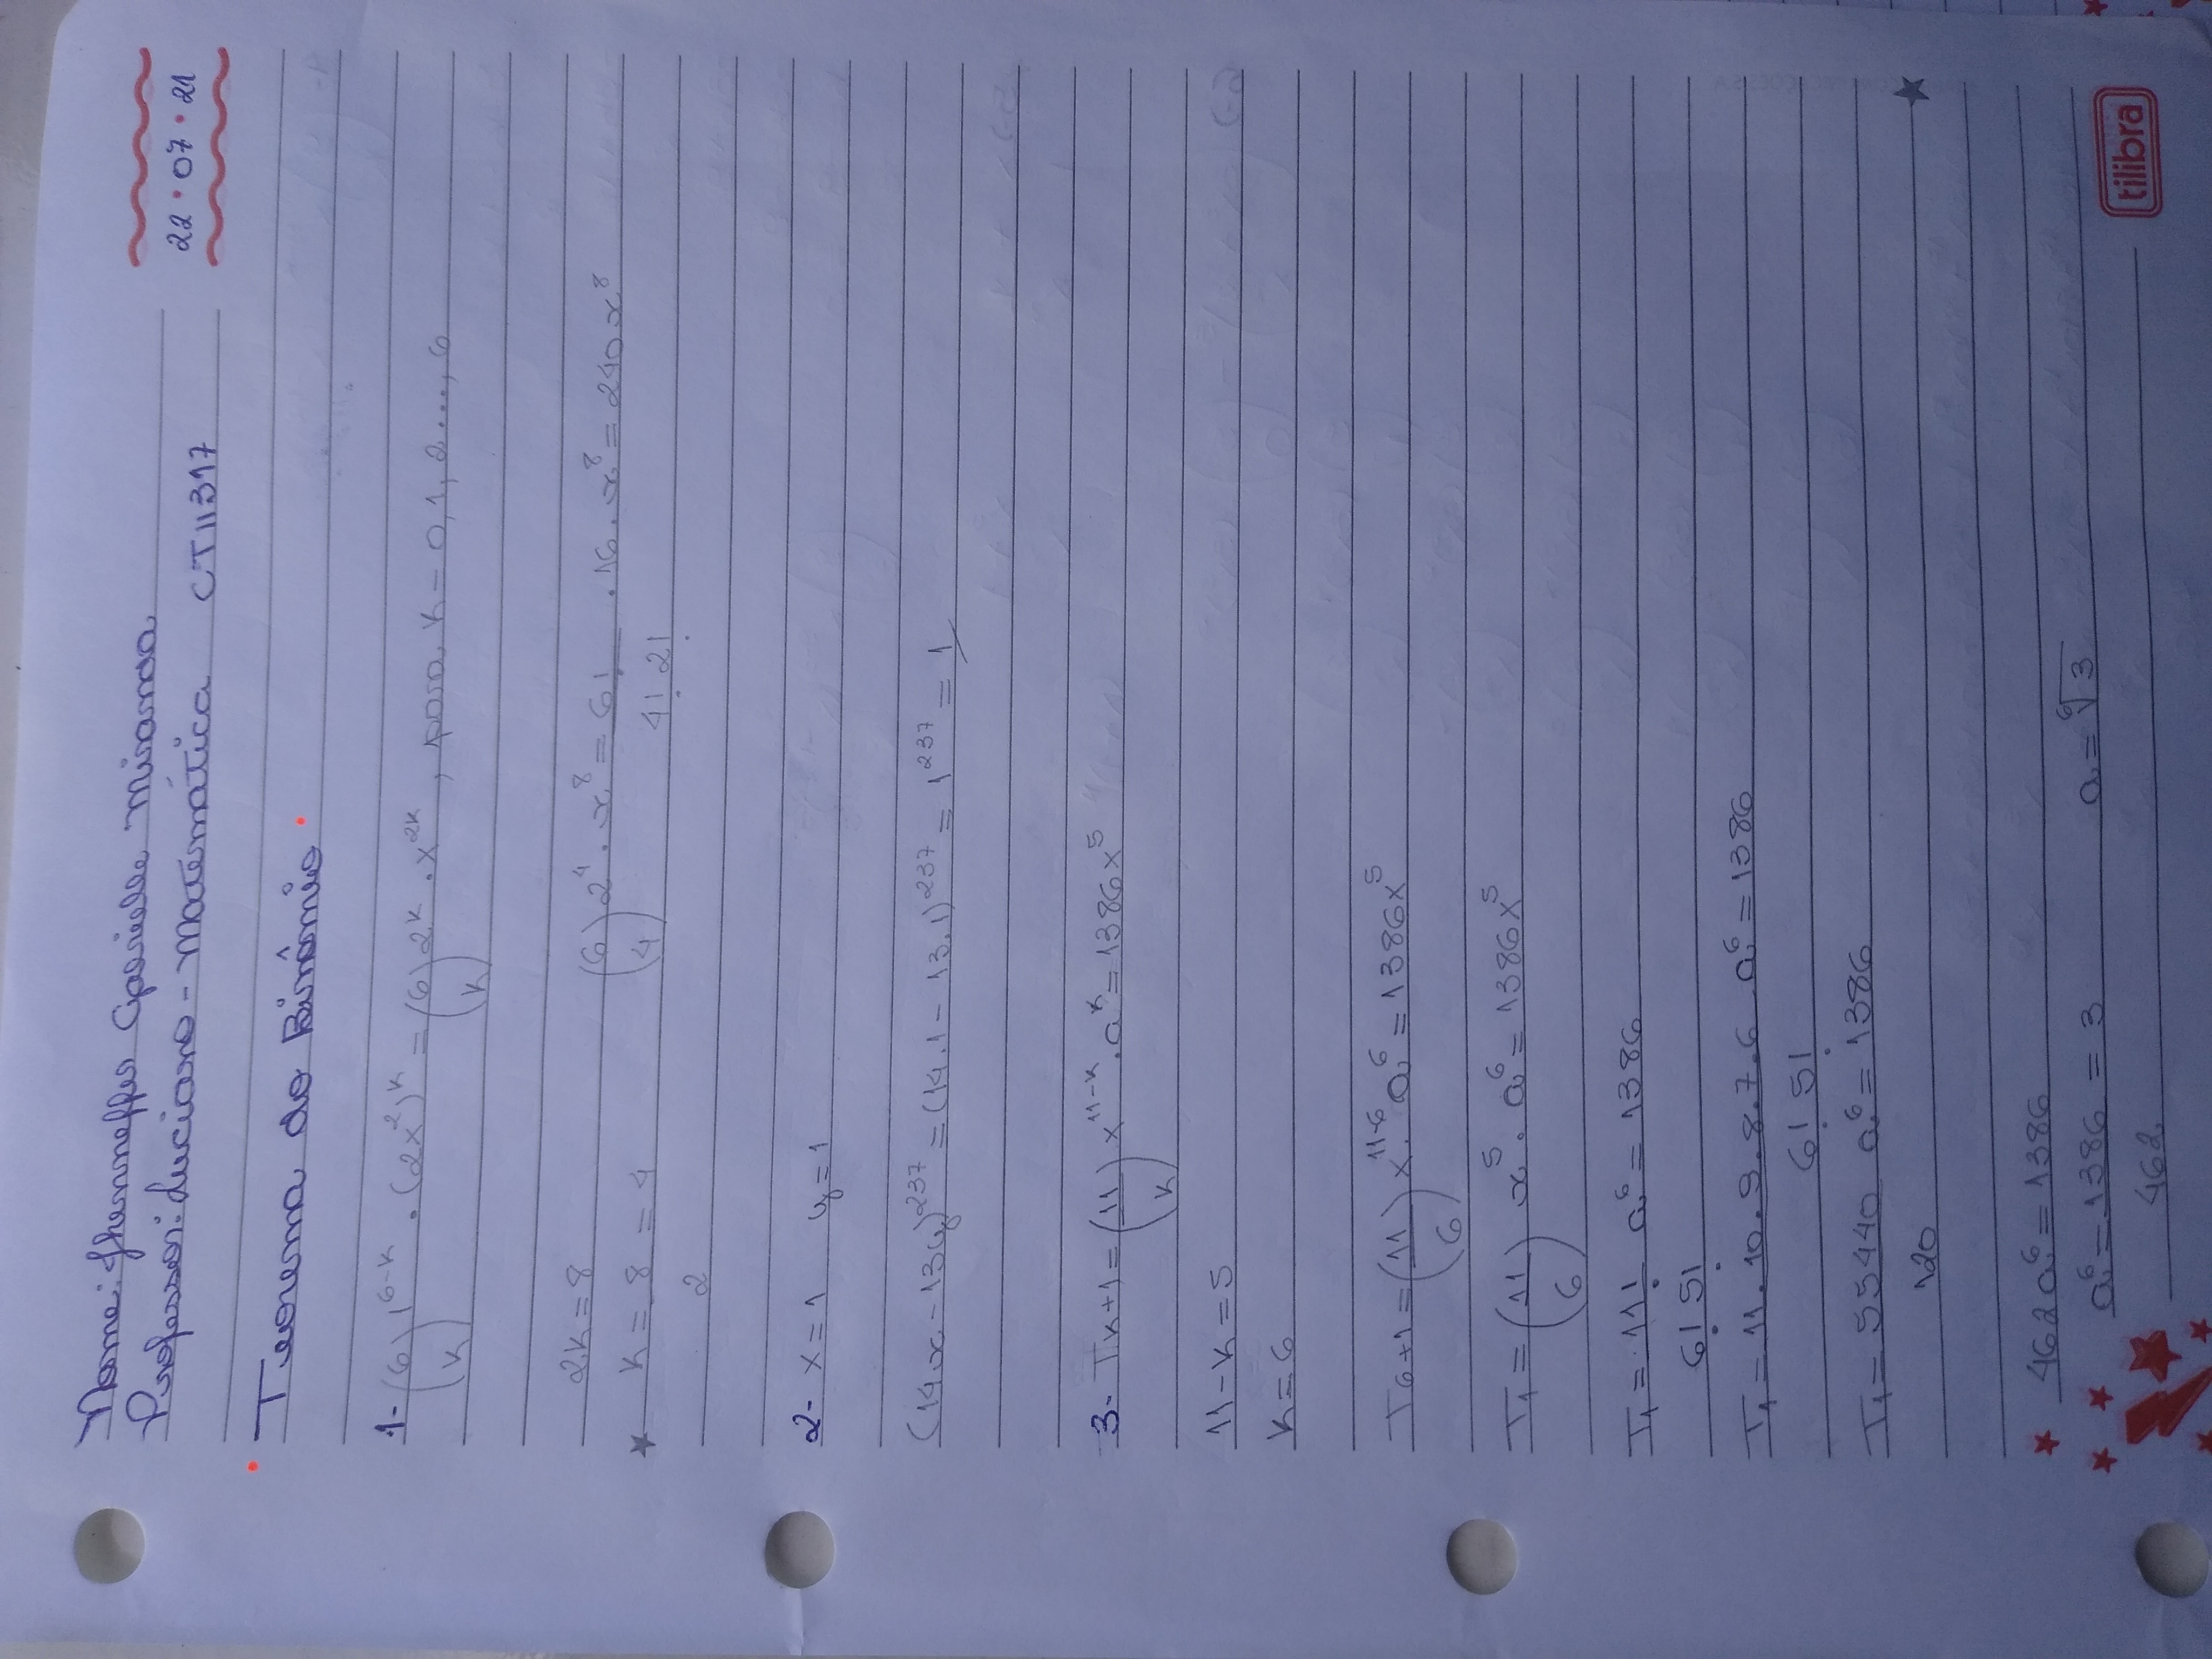 Nome: Jhenneffer Gabrielle Miranda
Professor: Luciano - Matemática CTII317
22 • 07 • 21
• Teorema do Binômio •
1- (6 K) 1^(6-K) . (2x²)^K = (6 K) 2^K . x^(2K), para K = 0, 1, 2 ..., 6
2K = 8
(6 4) 2⁴ . x⁸ = 6!/(4! 2!) . 16 . x⁸ = 240x⁸
K = 8/2 = 4
2- x = 1 y = 1
(14x - 13y)²³⁷ = (14.1 - 13.1)²³⁷ = 1²³⁷ = 1
3- TK+1 = (11/K) x^(11-K) . a^K = 1386x⁵
11 - K = 5
K = 6
T6+1 = (11/6) x^(11-6) . a⁶ = 1386x⁵
T1 = (11/6) x⁵ . a⁶ = 1386x⁵
T1 = 11!/(6! 5!) a⁶ = 1386
T1 = 11.10.9.8.7.6/(6! 5!) a⁶ = 1386
T1 = 55440/120 a⁶ = 1386
462a⁶ = 1386
a⁶ = 1386/462 = 3 a = ⁶√3
tilibra